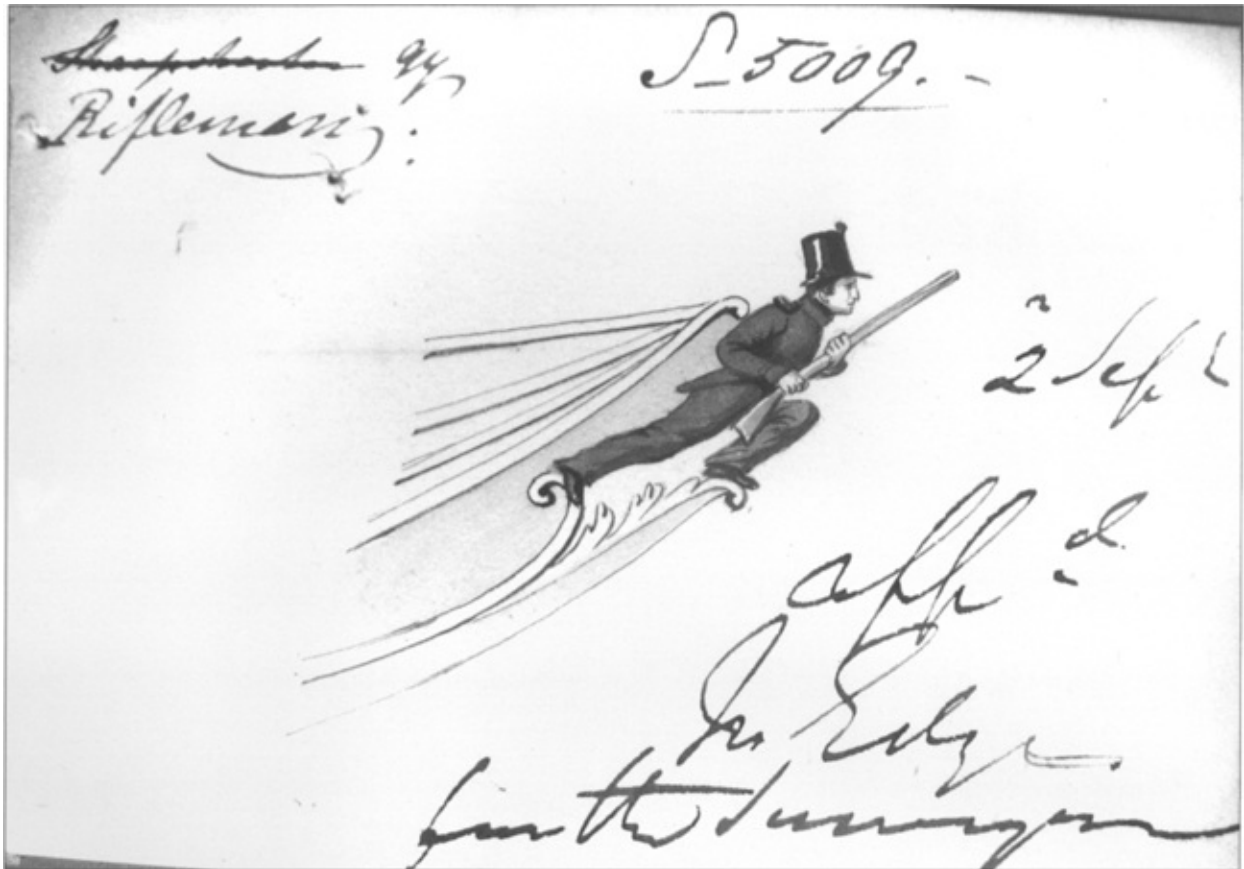 Sharpshooter 94
Rifleman:
S-5009.-
2 Sept
appd
Jn Edye
for the Surveyor